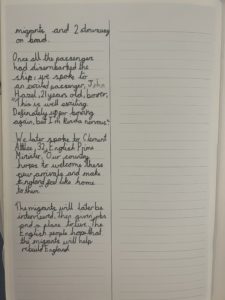 migrants and 2 stowaways
on board.
Once all the passenger
had disembarked the
ship, we spoke to
an excited passenger, John
Hazel, 21 years old, boxer,
"This is well exciting
Definately up for boxing
again, but I'm kinda nervous"
We later spoke to Clement
Attlee, 32, English Prime
Minister, "Our country
hopes to welcome these
new arrivals and make
England feel like home
to them".
The migrants will later be
interviewed, then given jobs
and a place to live. The
English people hope that
the migrants will help
rebuild England